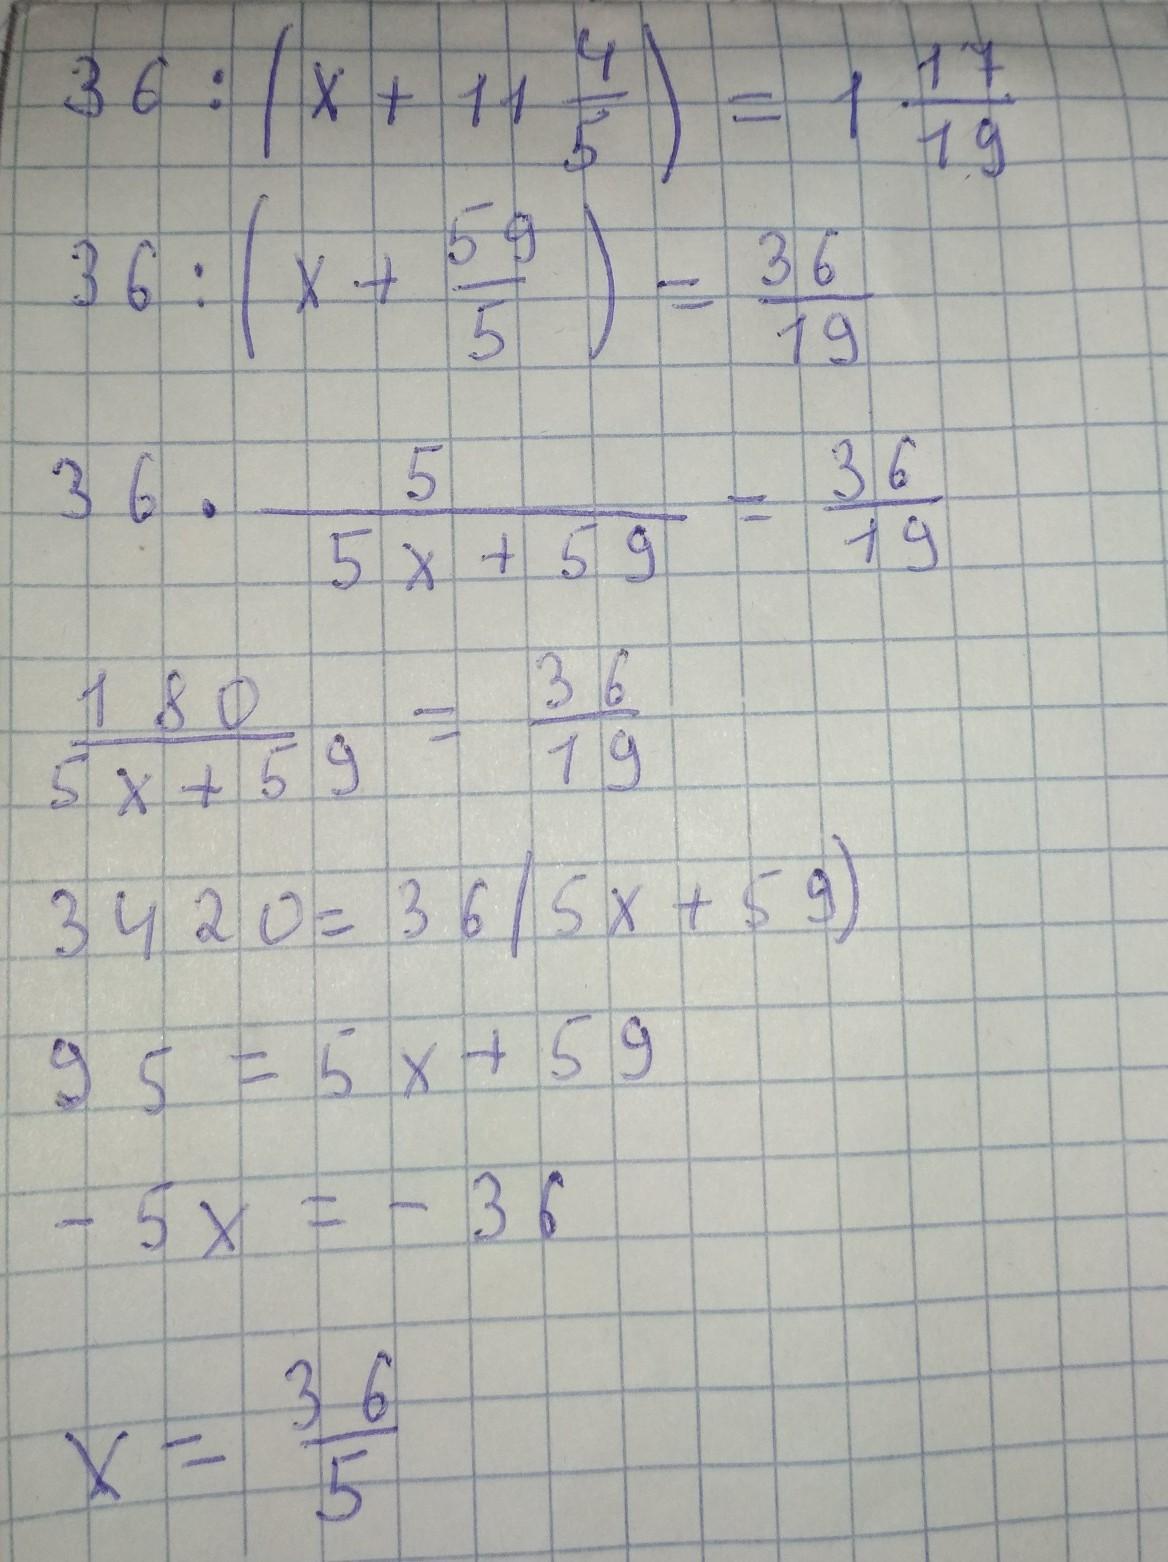 36 : (x + 11 4/5) = 1 17/19
36 : (x + 59/5) = 36/19
36 · 5/(5x + 59) = 36/19
180/(5x + 59) = 36/19
3420 = 36(5x + 59)
95 = 5x + 59
- 5x = - 36
x = 36/5